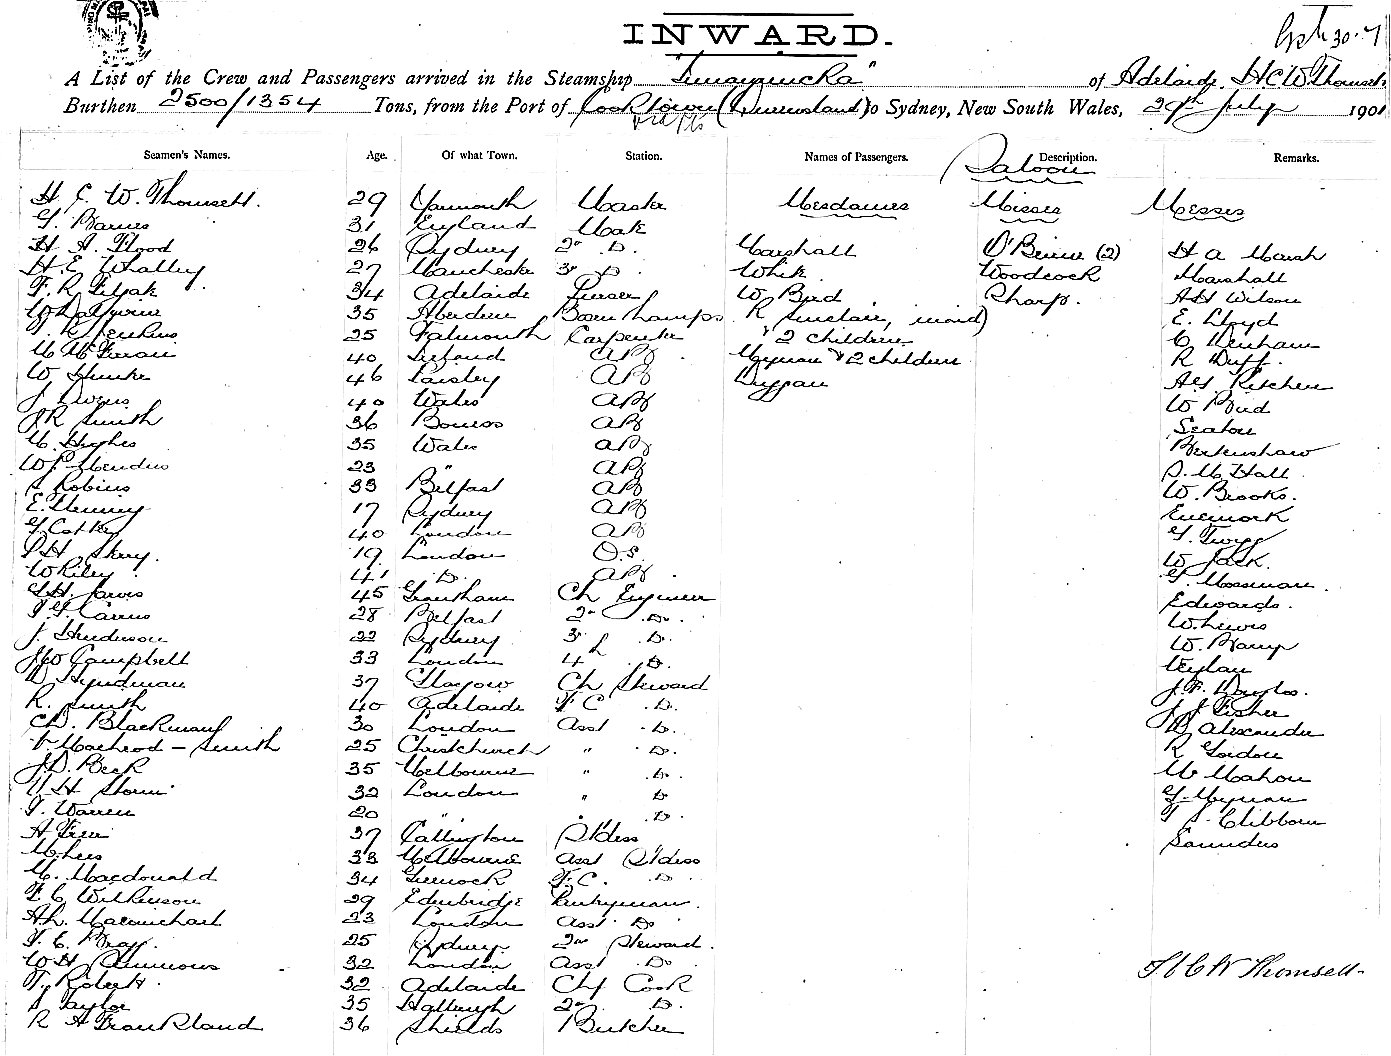 INWARD.
A List of the Crew and Passengers arrived in the Steamship "Innamincka" of Adelaide, H C W Thomsett
Burthen 2500/1354 Tons, from the Port of Cooktown (Queensland) to Sydney, New South Wales, 29th July 1901
Seamen's Names. Age. Of what Town. Station. Names of Passengers. Description. Remarks.
Saloon
H C W Thomsett. 29 Yarmouth Master Mesdames Misses Messrs
G. Barnes 31 England Mate
H A Flood 26 Sydney 2nd Do. Marshall O'Brien (2) H A Marsh
H E Whalley 27 Manchester 3rd Do White Woodcock Marshall
F. R. 34 Adelaide Purser W Bird Sharp. A H Wilson
35 Aberdeen Lamps R Sinclair, maid E. Lloyd
Jenkins 25 Falmouth Carpenter & 2 children C Denham
40 Ireland AB Wyman & 2 children R Duff
W 46 Paisley AB Duggan A G Kitchen
J Owens 40 Wales AB W Bird
J R Smith 36 AB Seaton
M. Hughes 35 Wales AB Birkenshaw
W 23 " AB S. M Hall
Robins 33 Belfast AB W. Brooks.
E. Fleming 17 Sydney AB
G 40 London AB G. Twigg
P H 19 London O.S. W Jack.
W Riley 41 Do. AB G. Mossman
G H. Jarvis 45 Grantham Ch Engineer Edwards.
28 Belfast 2nd Do. W. Lewis
J. Henderson 22 Sydney 3rd Do. W.
J W Campbell 33 London 4th Do.
Hyndman 37 Glasgow Ch Steward J. F. Douglas.
R. Smith 40 Adelaide F C Do. J J Fisher
C D. Blackman 30 London Asst Do. Alexander
Macleod - Smith 25 Christchurch " Do. R Gordon
J. D. Beck 35 Melbourne " Do. Mc Mahon
H Storm 32 London " Do G. Wyman
T. Warren 20 " Do. T S. Clibborn
A 37 Callington St'dess Saunders
M. Lees 33 Melbourne Asst St'dess
M. Macdonald 34 Greenock F. C. Do
F C Wilkinson 29 Edenbridge Pantryman.
A h. 23 London Asst Do
T. C. Bray. 25 Sydney 2nd Steward.
W H Simmons 32 London Asst Do H C W Thomsett
T. 32 Adelaide Chf Cook
S Taylor 35 2nd Do.
R H Frankland 36 Shields Butcher